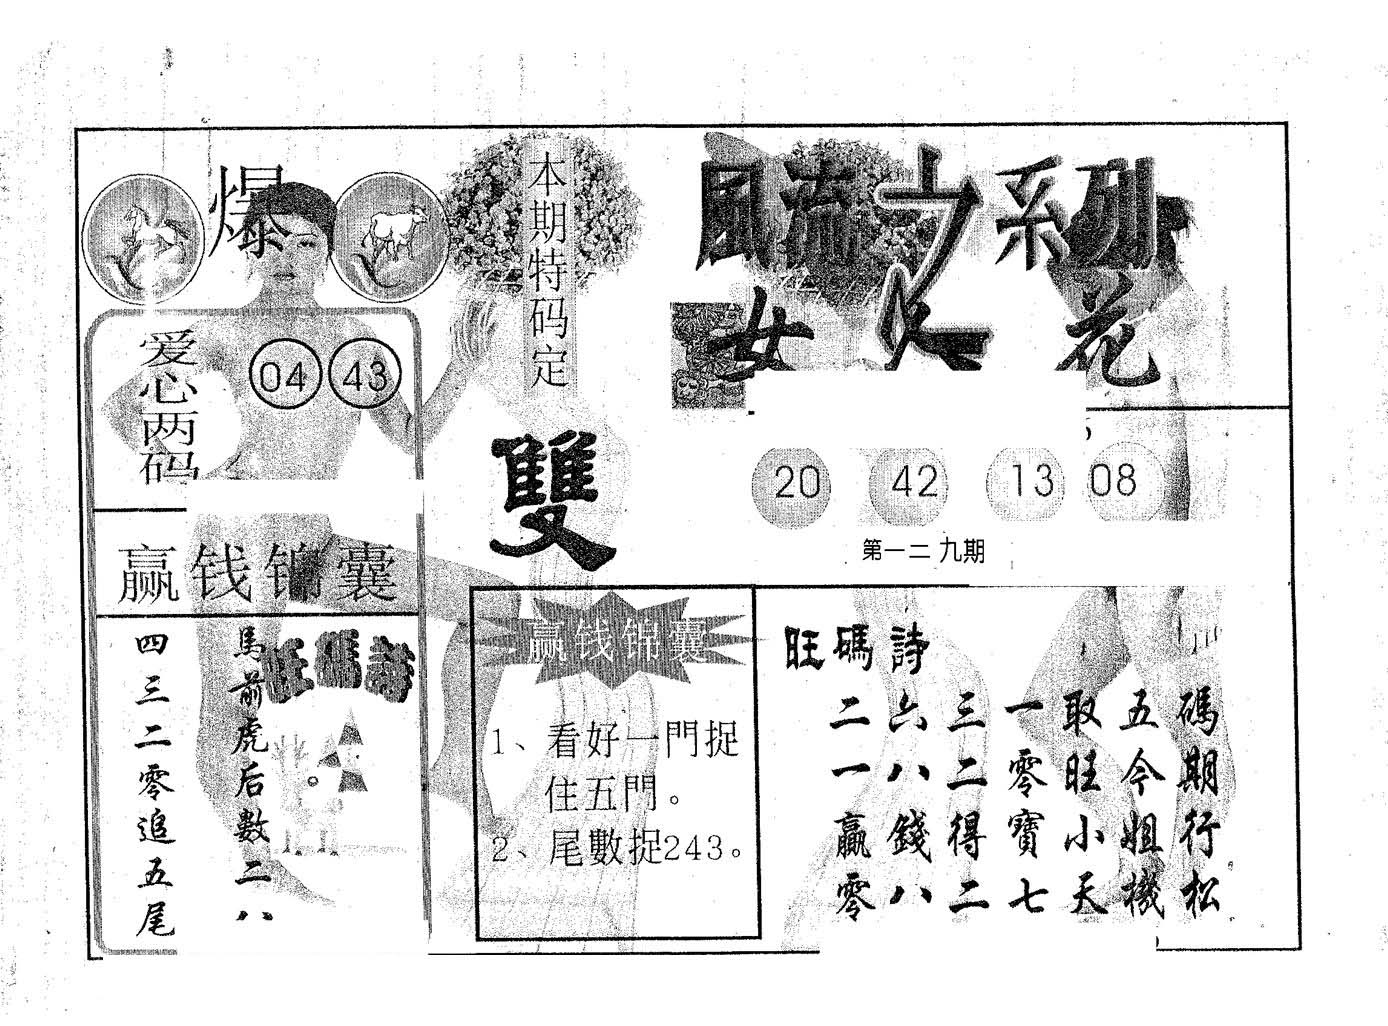 爆
本期特码定
雙
風流之系列
女人花
爱心两码
04 43
20 42 13 08
第一二九期
赢钱锦囊
旺碼詩
馬前虎后数二八
四三二零追五尾
赢钱锦囊
1、看好一門捉
住五門。
2、尾數捉243。
旺碼詩
二六三一取五碼
一八二零旺今期
贏錢得寶小姐行
零八二七天機松